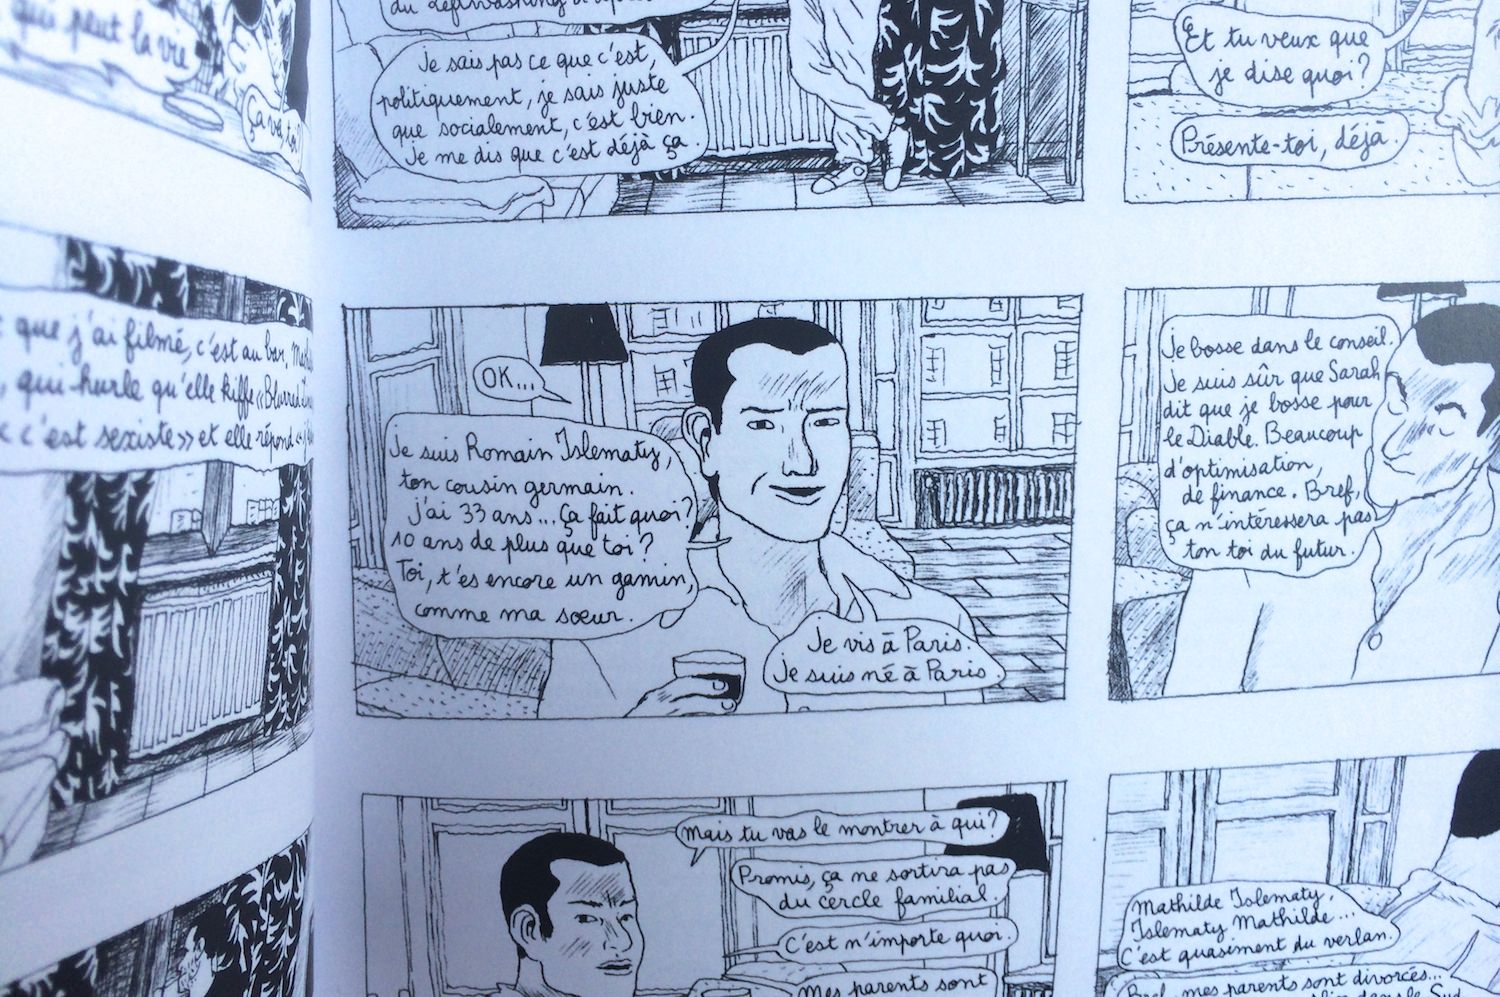 qui peut la vie
Ça va, toi?
que j'ai filmé, c'est au bar.
, qui hurle qu'elle kiffe «Blurred
c'est sexiste» et elle répond «
du
Je sais pas ce que c'est,
politiquement, je sais juste
que socialement, c'est bien.
Je me dis que c'est déjà ça.
Et tu veux que
je dise quoi?
Présente-toi, déjà.
OK...
Je suis Romain Islematy,
ton cousin germain.
J'ai 33 ans... Ça fait quoi?
10 ans de plus que toi?
Toi, t'es encore un gamin,
comme ma sœur.
Je vis à Paris.
Je suis né à Paris.
Je bosse dans le conseil.
Je suis sûr que Sarah
dit que je bosse pour
le Diable. Beaucoup
d'optimisation,
de finance. Bref,
ça n'intéressera pas
ton toi du futur.
Mais tu vas le montrer à qui?
Promis, ça ne sortira pas
du cercle familial.
C'est n'importe quoi.
Mes parents sont
Mathilde Islematy,
Islematy Mathilde...
C'est quasiment du verlan.
Bref, mes parents sont divorcés...
dans le Sud